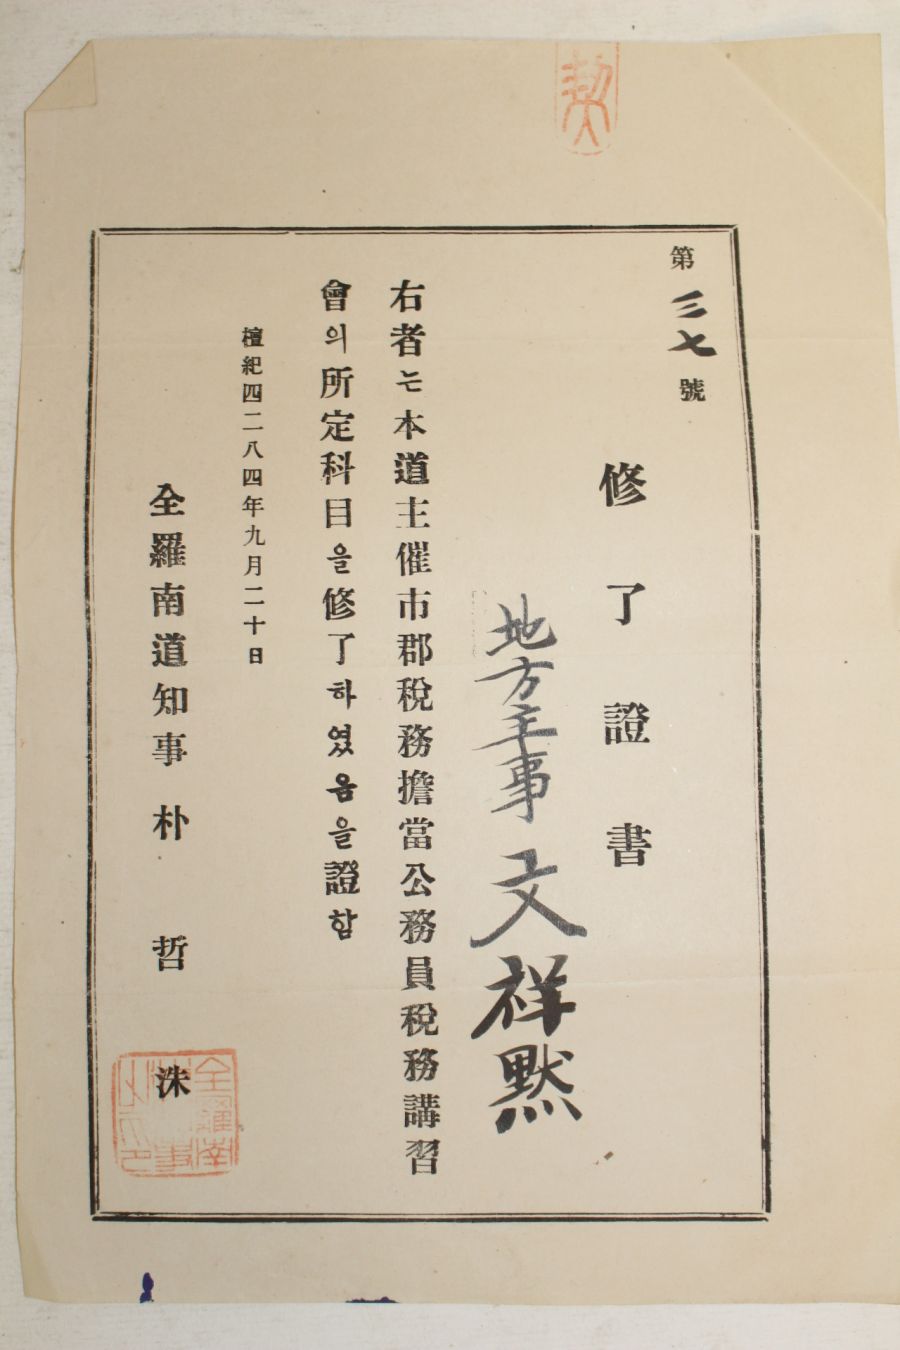 契
第三七號
修了證書
地方主事 文祥默
右者는本道主催市郡稅務擔當公務員稅務講習
會의所定科目을修了하였음을證함
檀紀四二八四年九月二十日
全羅南道知事 朴哲洙